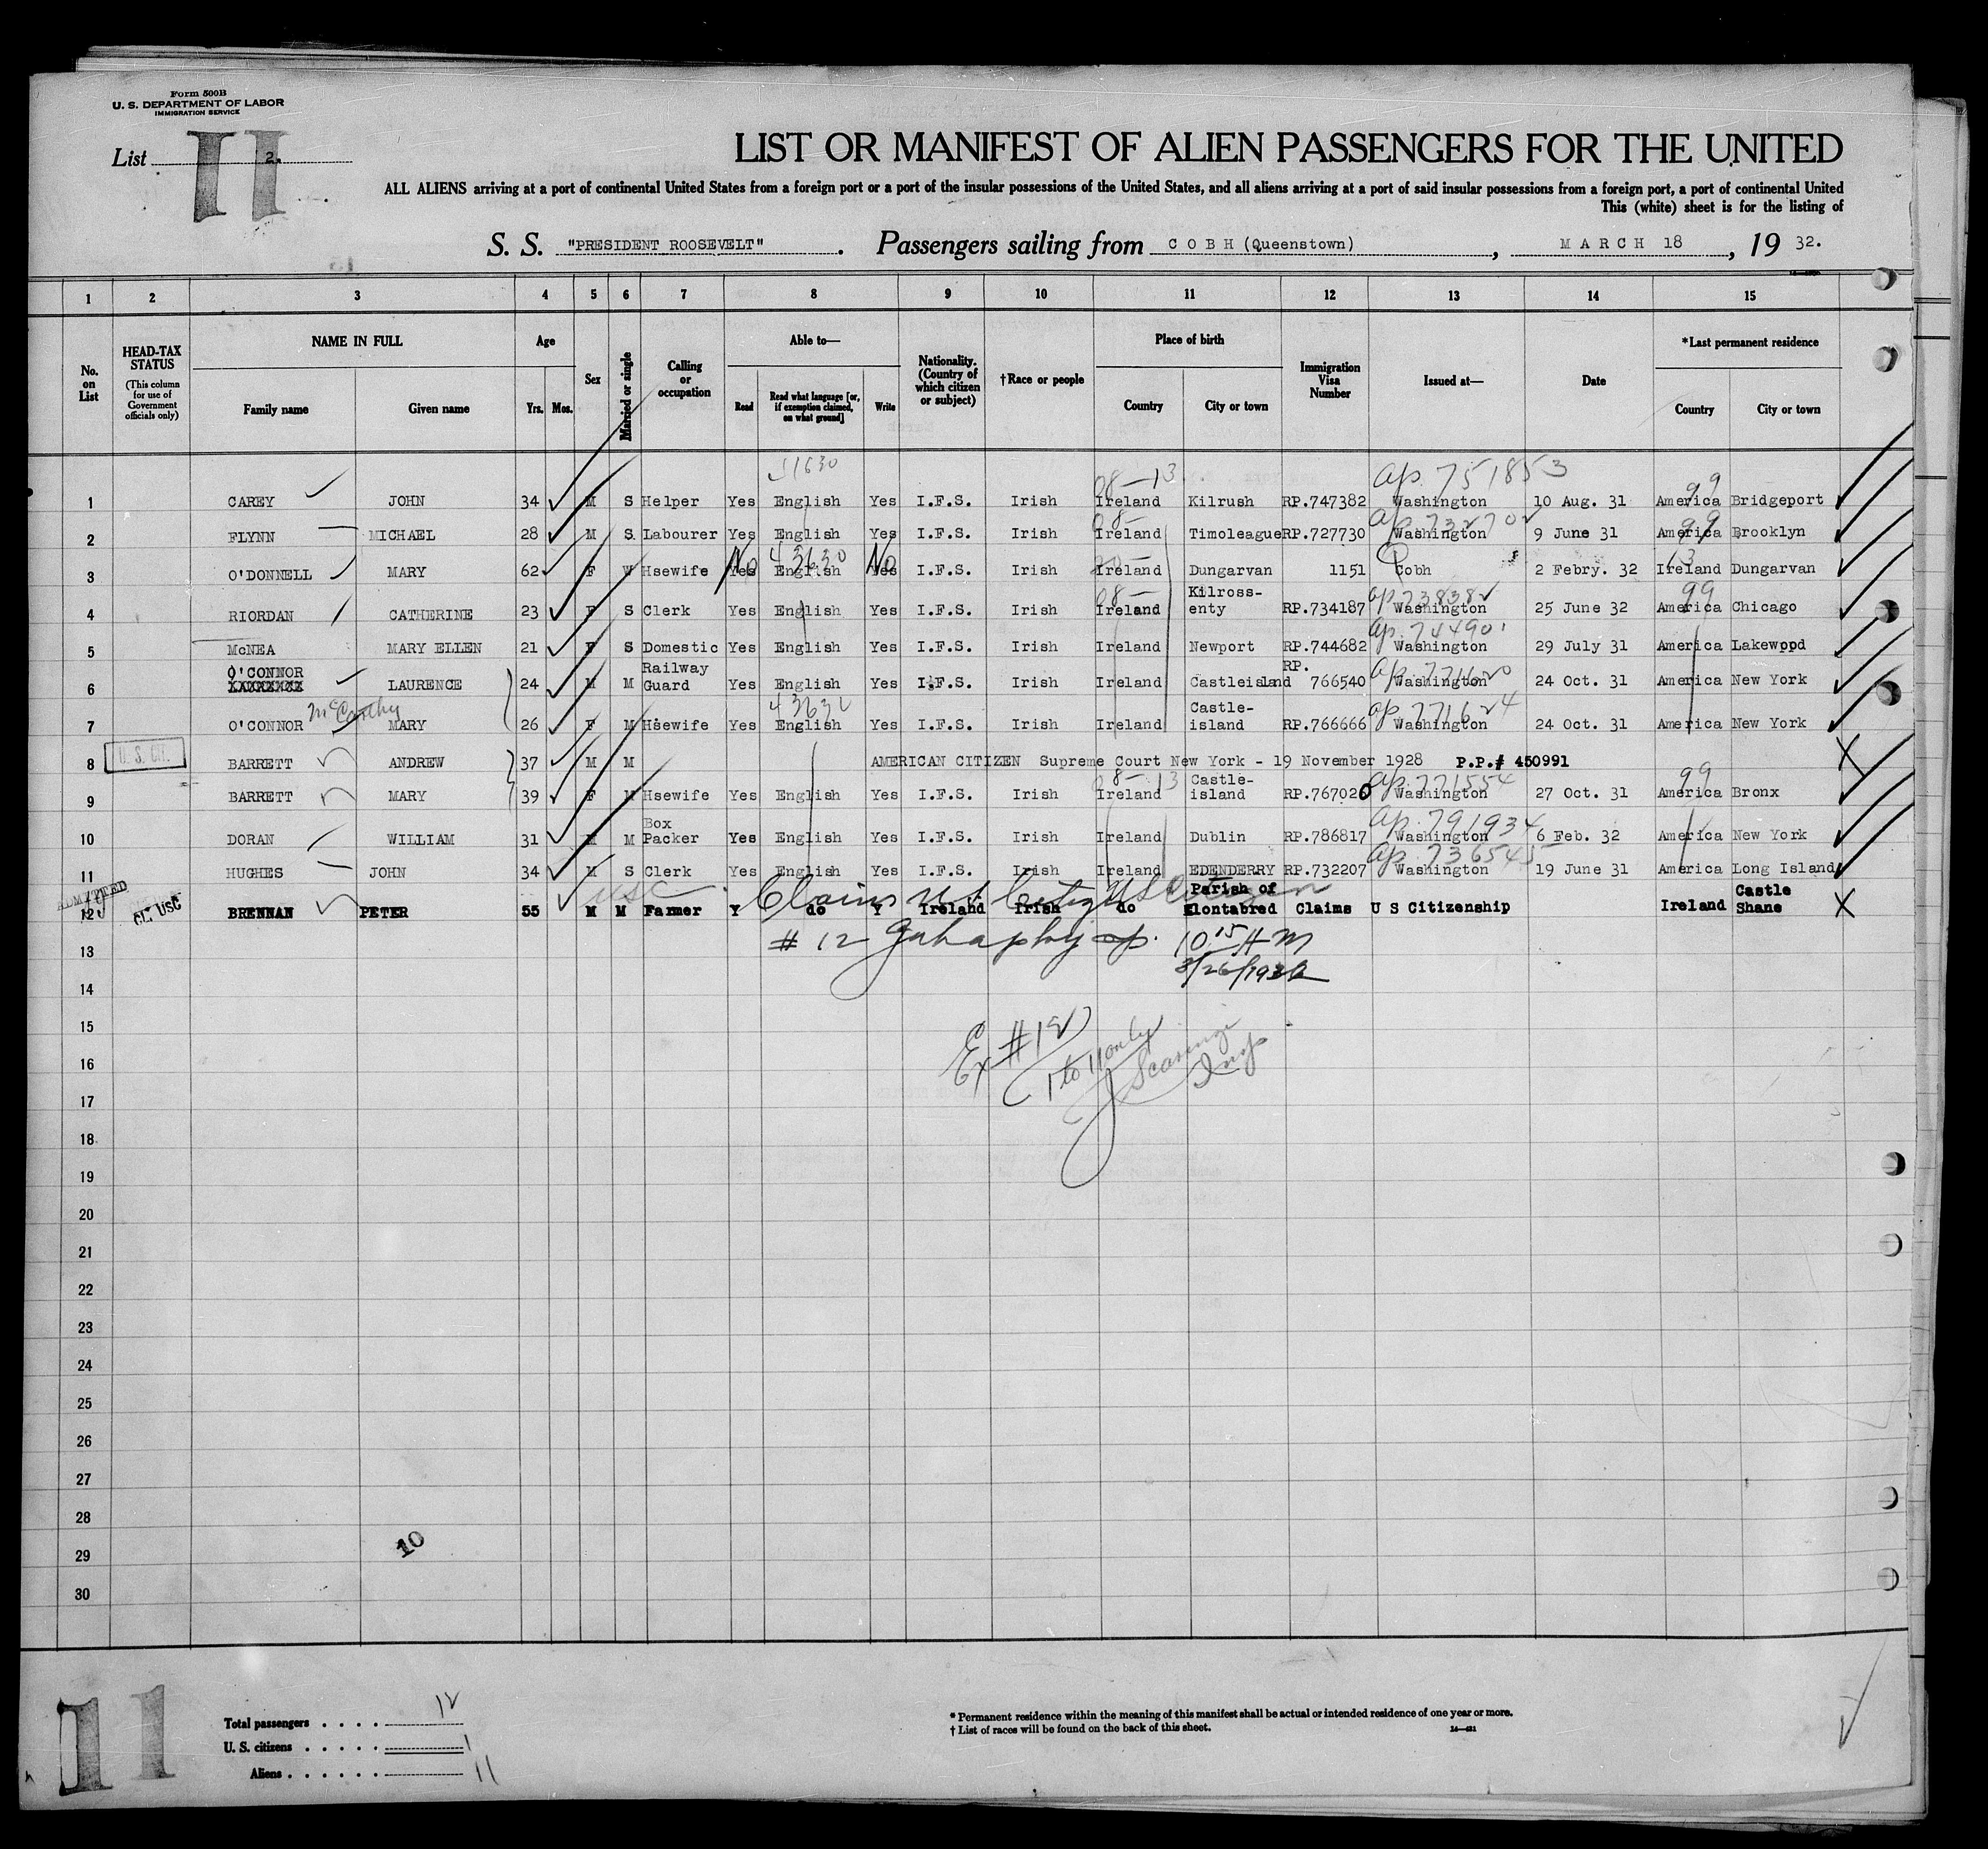 Form 500B
U. S. DEPARTMENT OF LABOR
IMMIGRATION SERVICE
List 2.
11
LIST OR MANIFEST OF ALIEN PASSENGERS FOR THE UNITED
ALL ALIENS arriving at a port of continental United States from a foreign port or a port of the insular possessions of the United States, and all aliens arriving at a port of said insular possessions from a foreign port, a port of continental United
This (white) sheet is for the listing of
S. S. "PRESIDENT ROOSEVELT". Passengers sailing from COBH (Queenstown), MARCH 18, 19 32.
1 2 3 4 5 6 7 8 9 10 11 12 13 14 15
No. on List
HEAD-TAX STATUS (This column for use of Government officials only)
NAME IN FULL
Family name
Given name
Age
Yrs. Mos.
Sex
Married or single
Calling or occupation
Able to—
Read
Read what language [or, if exemption claimed, on what ground]
Write
Nationality. (Country of which citizen or subject)
†Race or people
Place of birth
Country
City or town
Immigration Visa Number
Issued at—
Date
*Last permanent residence
Country
City or town
08-13 ap. 751853 99
1 CAREY JOHN 34 M S Helper Yes English Yes I.F.S. Irish Ireland Kilrush RP.747382 Washington 10 Aug. 31 America Bridgeport
08- 99
2 FLYNN MICHAEL 28 M S Labourer Yes English Yes I.F.S. Irish Ireland Timoleague RP.727730 Washington 9 June 31 America Brooklyn
No 43630 No 13
3 O'DONNELL MARY 62 F W Hsewife Yes English Yes I.F.S. Irish Ireland Dungarvan 1151 Cobh 2 Febry. 32 Ireland Dungarvan
08- ap. 738382 99
4 RIORDAN CATHERINE 23 F S Clerk Yes English Yes I.F.S. Irish Ireland Kilross-enty RP.734187 Washington 25 June 32 America Chicago
ap. 744901
5 McNEA MARY ELLEN 21 F S Domestic Yes English Yes I.F.S. Irish Ireland Newport RP.744682 Washington 29 July 31 America Lakewood
ap. 771620
6 O'CONNOR LAURENCE 24 M M Railway Guard Yes English Yes I.F.S. Irish Ireland Castleisland RP. 766540 Washington 24 Oct. 31 America New York
McCarthy ap. 771624
7 O'CONNOR MARY 26 F M Hsewife Yes English Yes I.F.S. Irish Ireland Castle-island RP.766666 Washington 24 Oct. 31 America New York
U. S. CIT.
8 BARRETT ANDREW 37 M M AMERICAN CITIZEN Supreme Court New York - 19 November 1928 P.P.# 450991
08-13 ap. 771554 99
9 BARRETT MARY 39 F M Hsewife Yes English Yes I.F.S. Irish Ireland Castle-island RP.767020 Washington 27 Oct. 31 America Bronx
ap. 791934
10 DORAN WILLIAM 31 M M Box Packer Yes English Yes I.F.S. Irish Ireland Dublin RP.786817 Washington 6 Feb. 32 America New York
ap. 736545
11 HUGHES JOHN 34 M S Clerk Yes English Yes I.F.S. Irish Ireland EDENDERRY RP.732207 Washington 19 June 31 America Long Island
ADMITTED CL. USC USC Claims US Citizen
12 BRENNAN PETER 55 M M Farmer Y do Y Ireland Irish do Parish of Clontabred Claims U S Citizenship Ireland Castle Shane
13 # 12 10 15 AM
3/26/1932
14
15
Ex #12
16
(1 to 11 only
17
Insp
18
19
20
21
22
23
24
25
26
27
28
29
10
30
11
Total passengers . . . . 12
U. S. citizens . . . . . 1
Aliens . . . . . . 11
* Permanent residence within the meaning of this manifest shall be actual or intended residence of one year or more.
† List of races will be found on the back of this sheet.